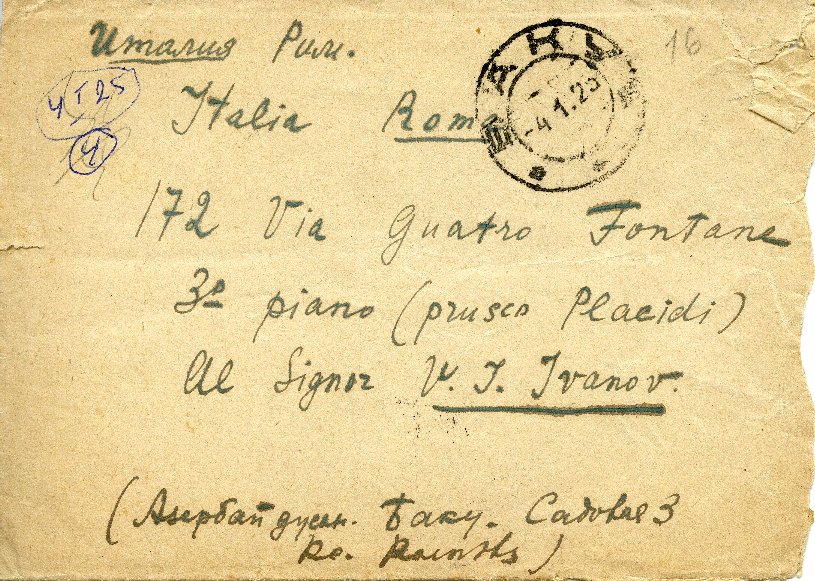 Италия Рим.
16
4 I 25
4
БАКУ
-4.1.25
Italia Rom
172 Via Guatro Fontane
3º piano (prusco Placidi)
Al Signor V. I. Ivanov.
(Азербайджан. Баку. Садовая 3